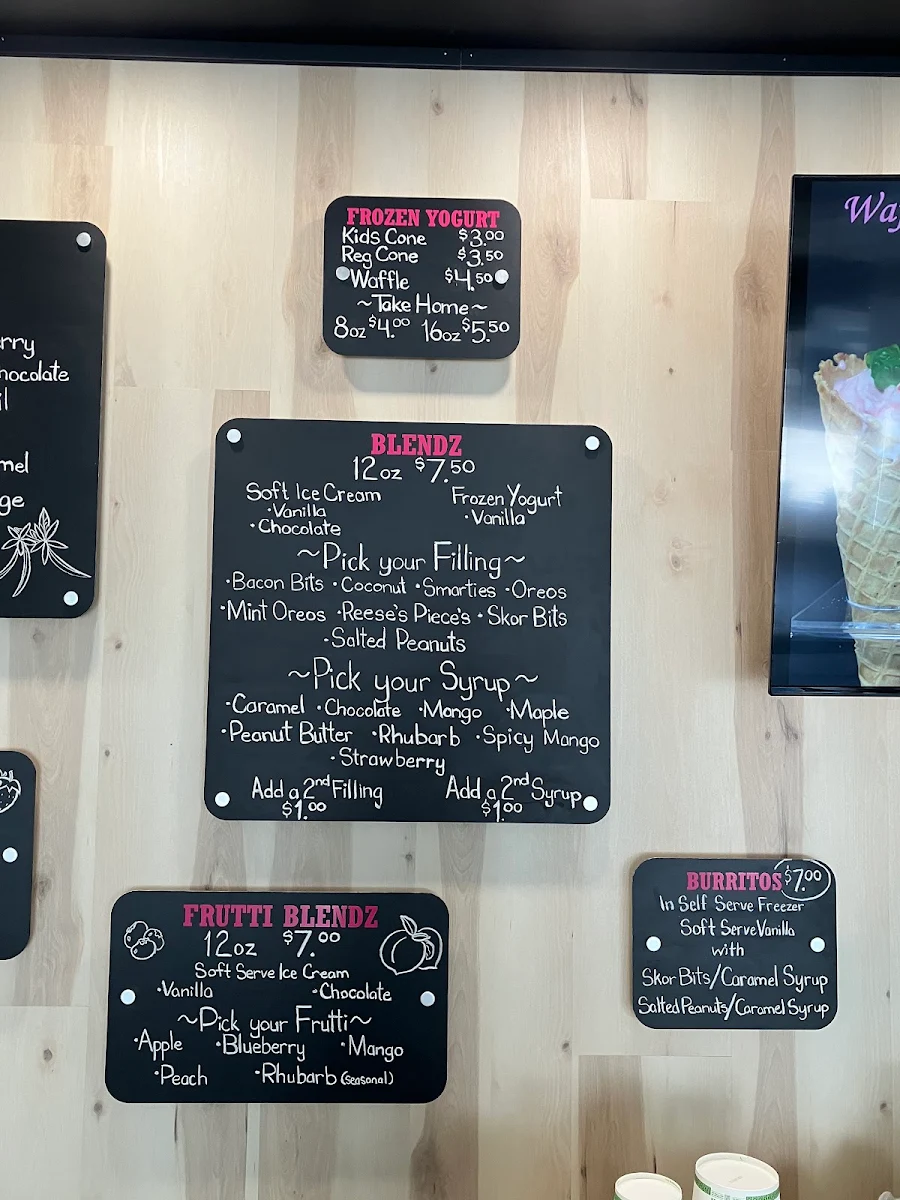 FROZEN YOGURT
Kids Cone $3.00
Reg Cone $3.50
Waffle $4.50
~Take Home~
8oz $4.00 16oz $5.50
BLENDZ
12oz $7.50
Soft Ice Cream Frozen Yogurt
·Vanilla ·Vanilla
·Chocolate
~Pick your Filling~
·Bacon Bits ·Coconut ·Smarties ·Oreos
·Mint Oreos ·Reese's Piece's ·Skor Bits
·Salted Peanuts
~Pick your Syrup~
·Caramel ·Chocolate ·Mango ·Maple
·Peanut Butter ·Rhubarb ·Spicy Mango
·Strawberry
Add a 2nd Filling Add a 2nd Syrup
$1.00 $1.00
FRUTTI BLENDZ
12oz $7.00
Soft Serve Ice Cream
·Vanilla ·Chocolate
~Pick your Frutti~
·Apple ·Blueberry ·Mango
·Peach ·Rhubarb (seasonal)
BURRITOS $7.00
In Self Serve Freezer
Soft Serve Vanilla
with
Skor Bits/Caramel Syrup
Salted Peanuts/Caramel Syrup